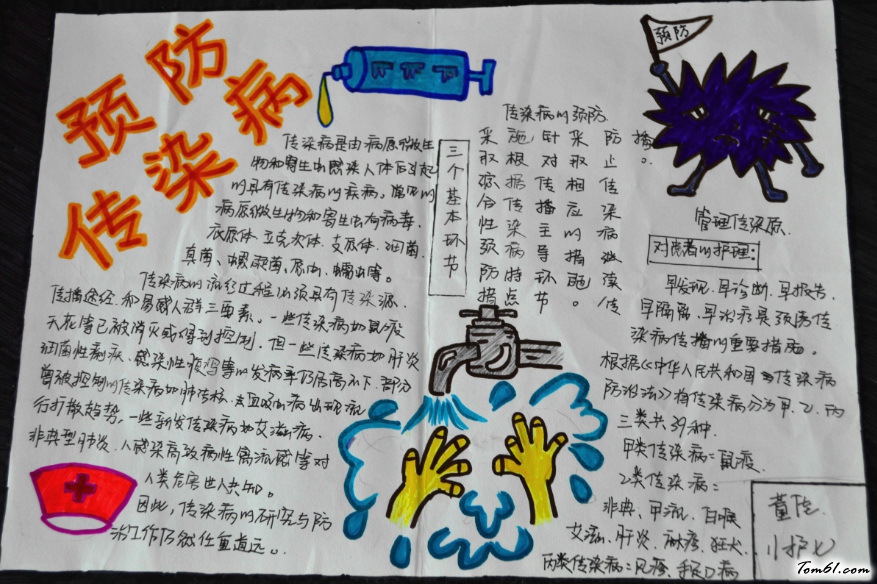 预防
传染病
传染病是由病原微生
物和寄生虫感染人体后引起
的具有传染病的疾病,常见的
病原微生物和寄生虫有病毒.
衣原体.立克次体.支原体.细菌
真菌、螺旋菌、原虫、蠕虫等。
传染病的流行过程必须具有传染源.
传播途径.和易感人群三要素。一些传染病如鼠疫
天花等已被消灭或得到控制,但一些传染病如肝炎
细菌性痢疾、感染性腹泻等的发病率仍居高不下.部分
曾被控制的传染病如肺结核.血吸虫病出现流
行扩散趋势,一些新发传染病如艾滋病.
非典型肺炎.人感染高致病性禽流感等对
人类危害也人尽知。
因此,传染病的研究与防
治工作仍然任重道远。
三个基本环节
传染病的预防
采取综合性预防措
施根据传染病特点
针对传播主导环节
采取相应的措施。
防止传染病继续传
播。
预防
管理传染原.
对患者的护理:
早发现.早诊断.早报告.
早隔离.早治疗是预防传
染病传播的重要措施。
根据《中华人民共和国传染病
防治法》将传染病分为甲.乙.丙
三类共39种.
甲类传染病=鼠疫.
乙类传染病=
非典.甲流.白喉
艾滋.肝炎.麻疹.狂犬.
丙类传染病=风疹.手足口病
小护士
Tom61.com